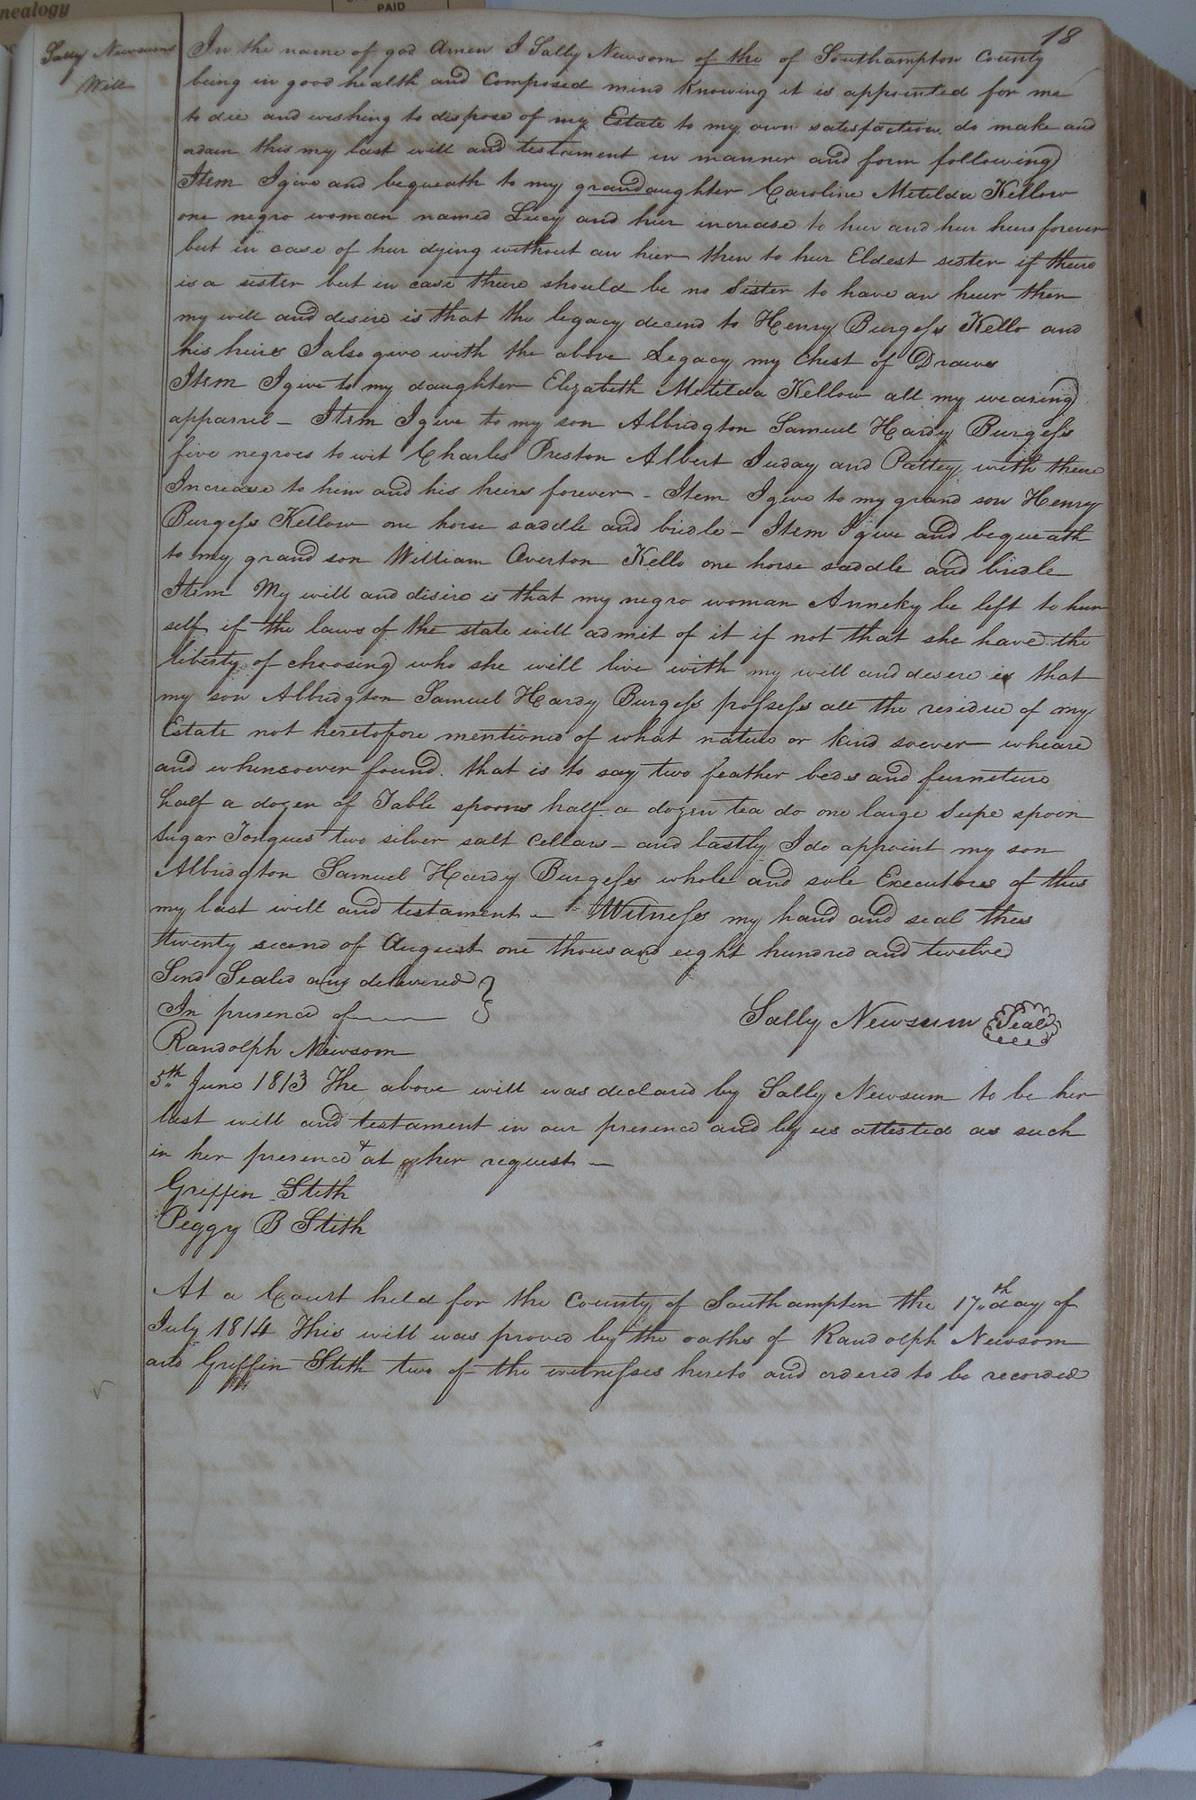 nealogy
PAID
18
Sally Newsums
Will
In the name of god Amen I Sally Newsom of the of Southampton County
being in good health and Composed mind Knowing it is appointed for me
to die and wishing to dispose of my Estate to my own satisfaction do make and
odain this my last will and testament in manner and form following
Item I give and bequeath to my grandaughter Caroline Metilda Kellow
one negro woman named Lucy and hur increase to hur and hur heirs forever
but in case of hur dying without an hier then to hur Eldest sister if theire
is a sister but in case theire should be no Sister to have an heir then
my will and desire is that the legacy decend to Henry Burgess Kello and
his heires I also give with the above Legacy my Chest of Drawes
Item I give to my daughter Elizabeth Metilda Kellow all my wearing
apparrel – Item I give to my son Albridgton Samuel Hardy Burgess
five negroes to wit Charles Preston Albert Juday and Pattey with theire
Increase to him and his heirs forever – Item I give to my grand son Henry
Burgess Kellow one horse saddle and bridle – Item I give and bequeath
to my grand son William Overton Kello one horse saddle and bridle
Item My will and disire is that my negro woman Anneky be left to hur
self if the laws of the state will admit of it if not that she have the
liberty of choosing who she will live with my will and desire is that
my son Albridgton Samuel Hardy Burgess possess all the residue of my
Estate not heretofore mentioned of what nature or kind soever wheare
and whensoever found. that is to say two feather beds and furneture
half a dozen of Table spoons half a dozen tea do one large Supe spoon
Sugar Tongues two silver salt Cellars – and lastly I do appoint my son
Albridgton Samuel Hardy Burgess whole and sole Executores of this
my last will and testament – Witness my hand and seal this
twenty second of August one thousand eight hundred and twelve
Sind Sealed and delivered
In presence of
Sally Newsum Seal
Randolph Newsom
5th June 1813 The above will was declared by Sally Newsum to be her
last will and testament in our presence and by us attested as such
in her presence & at her request –
Griffin Stith
Peggy B Stith
At a Court held for the County of Southampton the 17th day of
July 1814 This will was proved by the oaths of Randolph Newsom
and Griffin Stith two of the witnesses hereto and ordered to be recorded